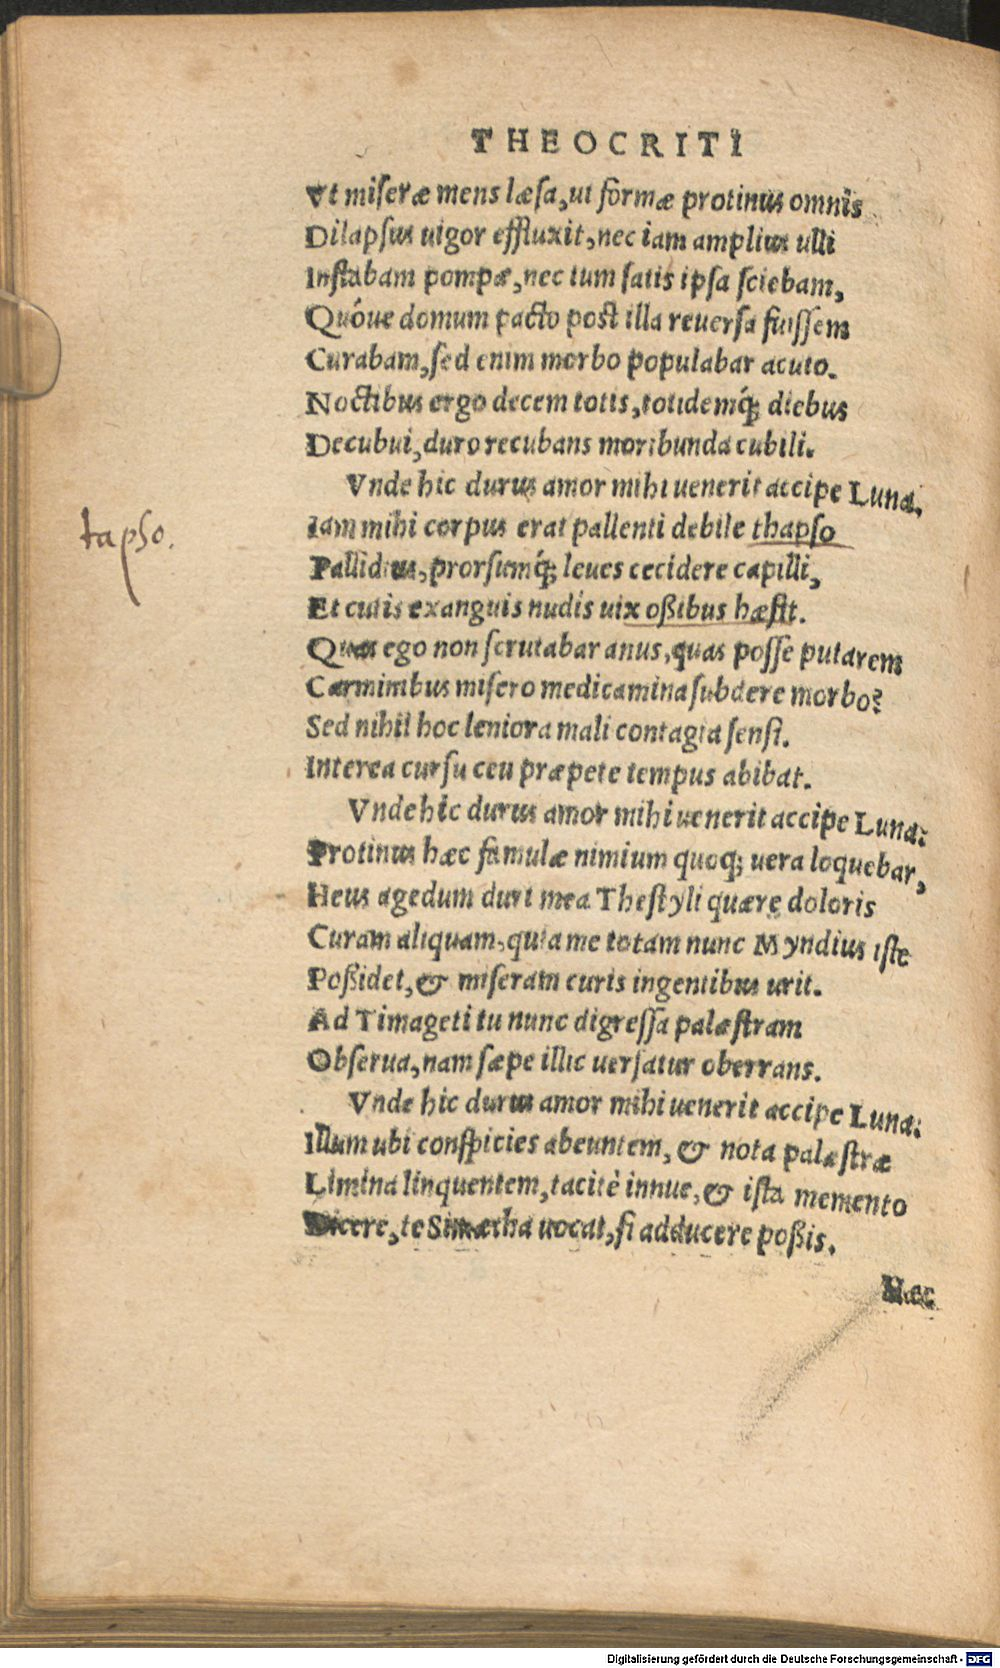 THEOCRITI
Vt miseræ mens læsa, ut formæ protinus omnis
Dilapsus uigor effluxit, nec iam amplius ulli
Instabam pompæ, nec tum satis ipsa sciebam,
Quóue domum pacto post illa reuersa fuissem
Curabam, sed enim morbo populabar acuto.
Noctibus ergo decem totis, totidemq́; diebus
Decubui, duro recubans moribunda cubili.
Vnde hic durus amor mihi uenerit accipe Luna.
Iam mihi corpus erat pallenti debile thapso
tapso.
Pallidius, prorsumq́; leues cecidere capilli,
Et cutis exanguis nudis uix oßibus hæsit.
Quas ego non scrutabar anus, quas posse putarem
Carminibus misero medicamina subdere morbo?
Sed nihil hoc leniora mali contagia sensi.
Interea cursu ceu præpete tempus abibat.
Vnde hic durus amor mihi uenerit accipe Luna:
Protinus hæc famulæ nimium quoq; uera loquebar,
Heus agedum duri mea Thestyli quære doloris
Curam aliquam, quia me totam nunc Myndius iste
Poßidet, & miseram curis ingentibus urit.
Ad Timageti tu nunc digressa palæstram
Obserua, nam sæpe illic uersatur oberrans.
Vnde hic durus amor mihi uenerit accipe Luna:
Illum ubi conspicies abeuntem, & nota palæstræ
Limina linquentem, tacitè innue, & ista memento
Dicere, te Simætha uocat, si adducere poßis.
Hæc
Digitalisierung gefördert durch die Deutsche Forschungsgemeinschaft - DFG